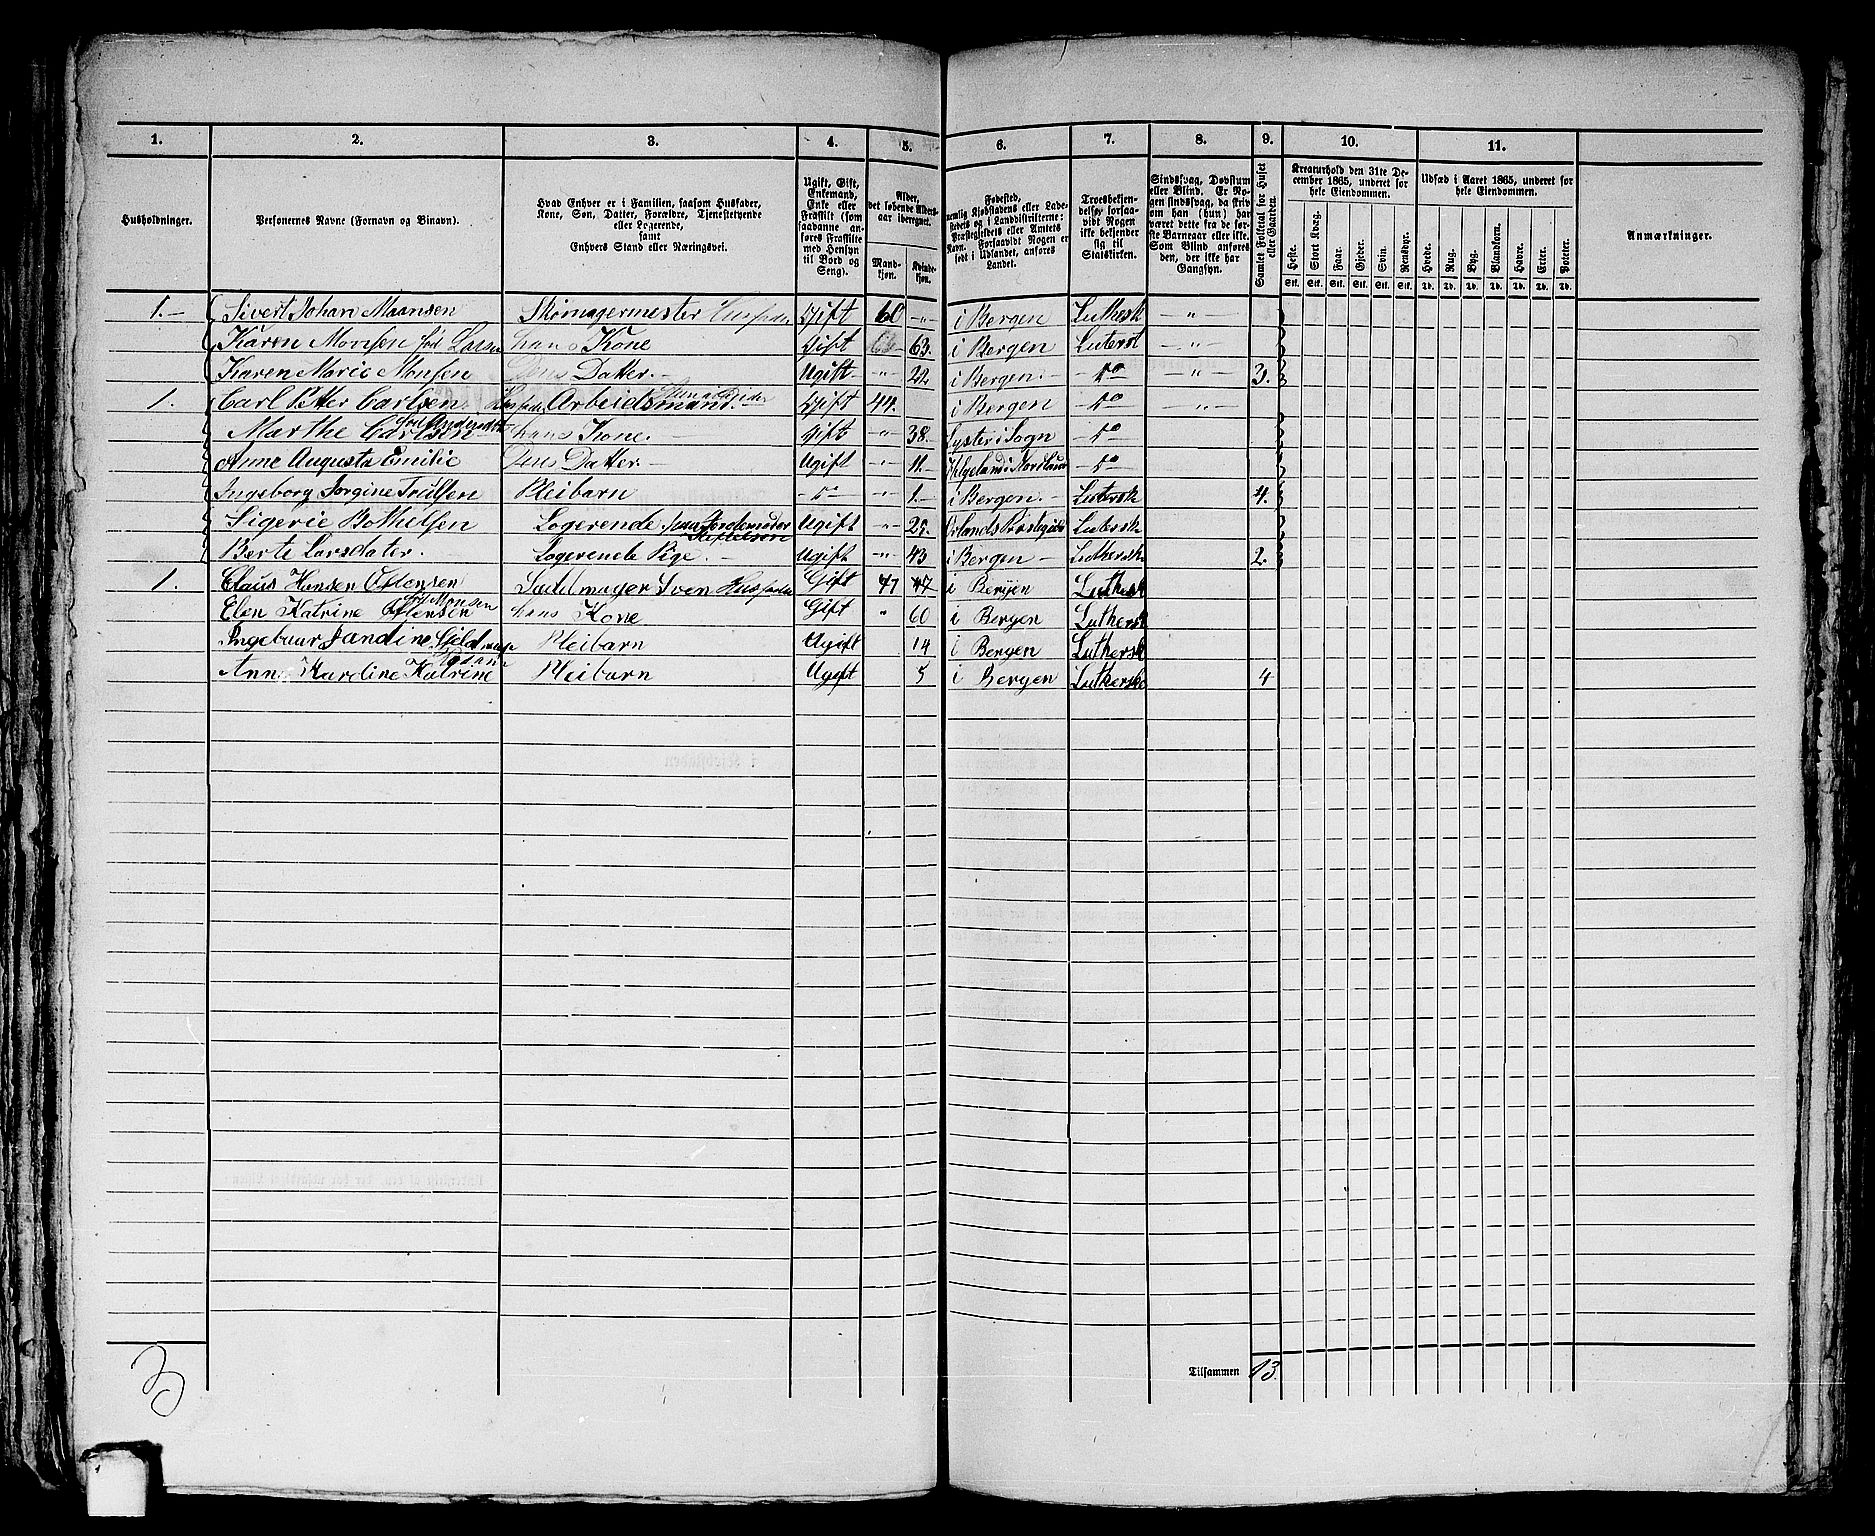 1. 2. 3. 4. 5. 6. 7. 8. 9. 10. 11.
Husholdninger.
Personernes Navne (Fornavn og Binavn).
Hvad Enhver er i Familien, saasom Husfader,
Kone, Søn, Datter, Forældre, Tjenestetyende
eller Logerende,
samt
Enhvers Stand eller Næringsvei.
Ugift, Gift,
Enkemand,
Enke eller
Fraskilt (som
saadanne an-
føres Fraskilte
med Hensyn
til Bord og
Seng).
Alder,
det løbende Alders-
aar iberegnet.
Mand-
kjøn.
Kvinde-
kjøn.
Fødested,
nemlig Kjøbstadens eller Lade-
stedets og i Landdistrikterne:
Præstegjeldets eller Amtets
Navn. Forsaavidt Nogen er
født i Udlandet, anføres
Landet.
Troesbekjen-
delse, forsaa-
vidt Nogen
ikke bekjender
sig til
Statskirken.
Sindssvag, Døvstum
eller Blind. Er No-
gen sindssvag, da skriv
om han (hun) har
været dette fra de før-
ste Barneaar eller ikke.
Som Blind anføres
den, der ikke har
Gangsyn.
Samlet Folketal for Huset
eller Gaarden.
Kreaturhold den 31te De-
cember 1865, underet for
hele Eiendommen.
Heste. Stort Kvæg. Faar. Gjeder. Svin. Rensdyr.
Stk. Stk. Stk. Stk. Stk. Stk.
Udsæd i Aaret 1865, underet for
hele Eiendommen.
Hvede. Rug. Byg. Blandkorn. Havre. Erter. Poteter.
Td. Td. Td. Td. Td. Td. Td.
Anmærkninger.
1. Sivert Johan Maansen Skomagermester Husfader Gift 60 " i Bergen Luthersk "
Karen Monsen fød Larsen hans Kone Gift 63. i Bergen Lutersk "
Karen Marie Monsen Dens Datter. Ugift " 22. i Bergen. do " 3.
1. Carl Petter Carlsen Husfader Arbeidsmand. Gift 44. i Bergen do "
Marthe Carlsen hans Kone. Gift " 38. Lyster i Sogn do
Anne Augusta Emilie Dens Datter. Ugift " 11. Helgeland i Nordland do
Ingeborg Jorgine Trulsen Pleibarn do " 1. i Bergen. Lutersk 4.
Sigerie Bothelsen Logerende Ugift " 25. Lutersk
Berte Larsdater. Logerende Pige. Ugift " 43 i Bergen Luthersk 2.
1. Claus Hansen Ostensen Sadelmager Sven Husfader Gift 47 47 i Bergen Luthersk
Elen Katrine Ostensen fød Monsen hans Kone Gift " 60 i Bergen Luthersk
Ingebaar Jandine Pleibarn Ugift 14 i Bergen Luthersk
Anne Karoline Katrine Pleibarn Ugift 5 i Bergen Lutherske 4
Tilsammen 13.
3